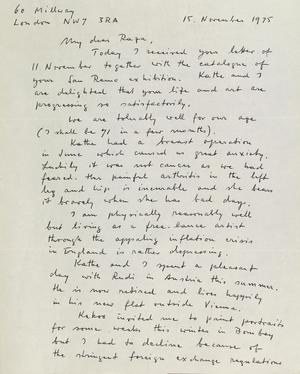 60 Millway
London NW7 3RA 15. November 1975
My dear Raza,
Today I received your letter of
11 November together with the catalogue of
your San Remo exhibition. Kathe and I
are delighted that your life and art are
progressing so satisfactorily.
We are tolerably well for our age
(I shall be 71 in a few months).
Kathe had a breast operation
in June which caused us great anxiety.
Luckily it was not cancer as we had
feared. Her painful arthritis in the left
leg and hip is incurable and she bears
it bravely when she has bad days.
I am physically reasonably well
but living as a free-lance artist
through the appalling inflation crisis
in England is rather depressing.
Kathe and I spent a pleasant
day with Rudi in Austria this summer.
He is now retired and lives happily
in his new flat outside Vienna.
Kekoo invited me to paint portraits
for some weeks this winter in Bombay
but I had to decline because of
the stringent foreign exchange regulations